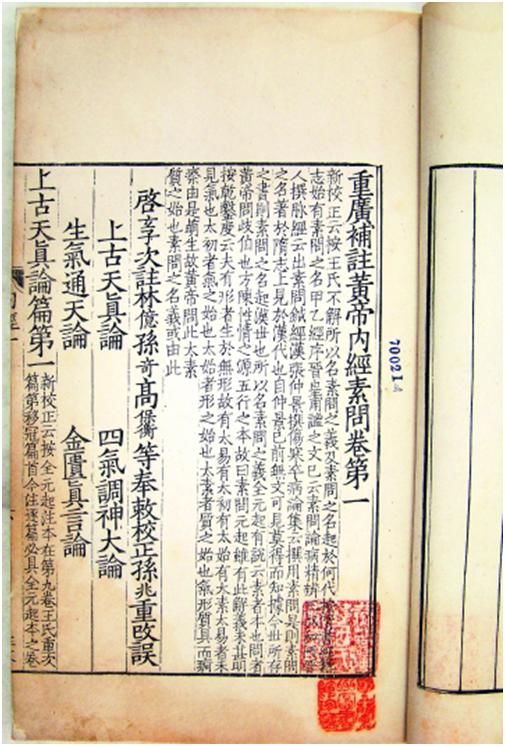 重廣補註黃帝內經素問卷第一
新校正云按王氏不解所以名素問之義及素問之名起於何代按隋書經籍
志始有素問之名甲乙經序晉皇甫謐之文已云素問論病精辨王叔和西晉
人撰脉經云出素問鍼經漢張仲景撰傷寒卒病論集云撰用素問是則素問
之名著於隋志上見於漢代也自仲景已前無文可見莫得而知據今世所存
之書則素問之名起漢世也所以名素問之義全元起有說云素者本也問者
黃帝問歧伯也方陳性情之源五行之本故曰素問元起雖有此解義未甚明
按乾鑿度云夫有形者生於無形故有太易有太初有太始有太素太易者未
見氣也太初者氣之始也太始者形之始也太素者質之始也氣形質具而痾
瘵由是萌生故黃帝問此太素
質之始也素問之名義或由此
啓玄子次註林億孫奇高保衡等奉敕校正孫兆重改誤
上古天眞論 四氣調神大論
生氣通天論 金匱眞言論
上古天眞論篇第一
新校正云按全元起注本在第九卷王氏重次
篇第移冠篇首今注逐篇必具全元起本之卷
內經一
700214